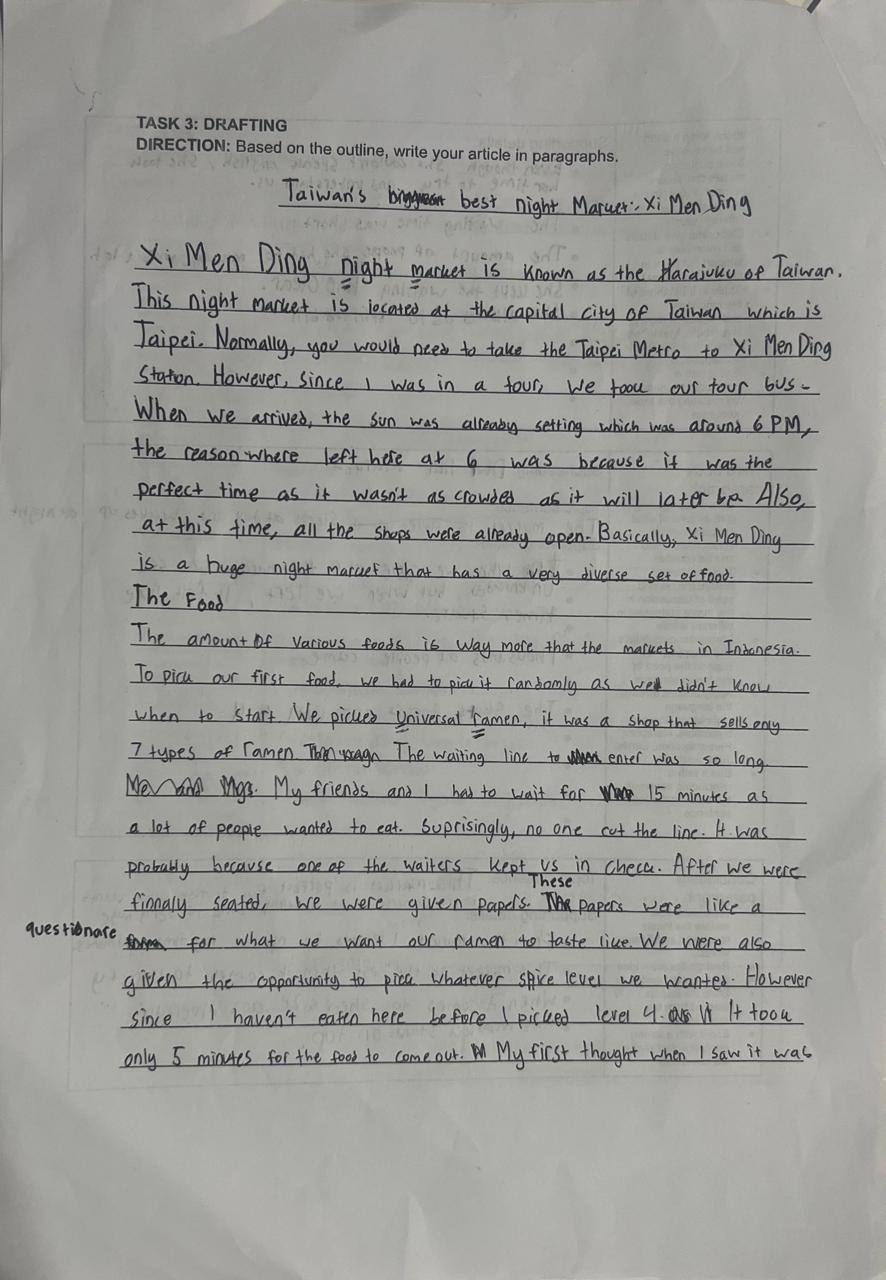 TASK 3: DRAFTING
DIRECTION: Based on the outline, write your article in paragraphs.
Taiwan's best night Market: Xi Men Ding
Xi Men Ding night market is known as the Harajuku of Taiwan.
This night market is located at the capital city of Taiwan which is
Taipei. Normally, you would need to take the Taipei Metro to Xi Men Ding
Station. However, since I was in a tour, we took our tour bus.
When we arrived, the sun was already setting which was around 6 PM,
the reason where left here at 6 was because it was the
perfect time as it wasn't as crowded as it will later be. Also,
at this time, all the shops were already open. Basically, Xi Men Ding
is a huge night market that has a very diverse set of food.
The Food
The amount of various foods is way more that the markets in Indonesia.
To pick our first food, we had to pick it randomly as we didn't know
when to start. We picked Universal ramen, it was a shop that sells only
7 types of ramen. The waiting line to enter was so long.
My friends and I had to wait for 15 minutes as
a lot of people wanted to eat. Suprisingly, no one cut the line. It was
probably because one of the waiters kept us in check. After we were
These
finnaly seated, we were given papers. papers were like a
questionare for what we want our ramen to taste like. We were also
given the opportunity to pick whatever spice level we wanted. However
since I haven't eaten here before I picked level 4. It took
only 5 minutes for the food to come out. My first thought when I saw it was